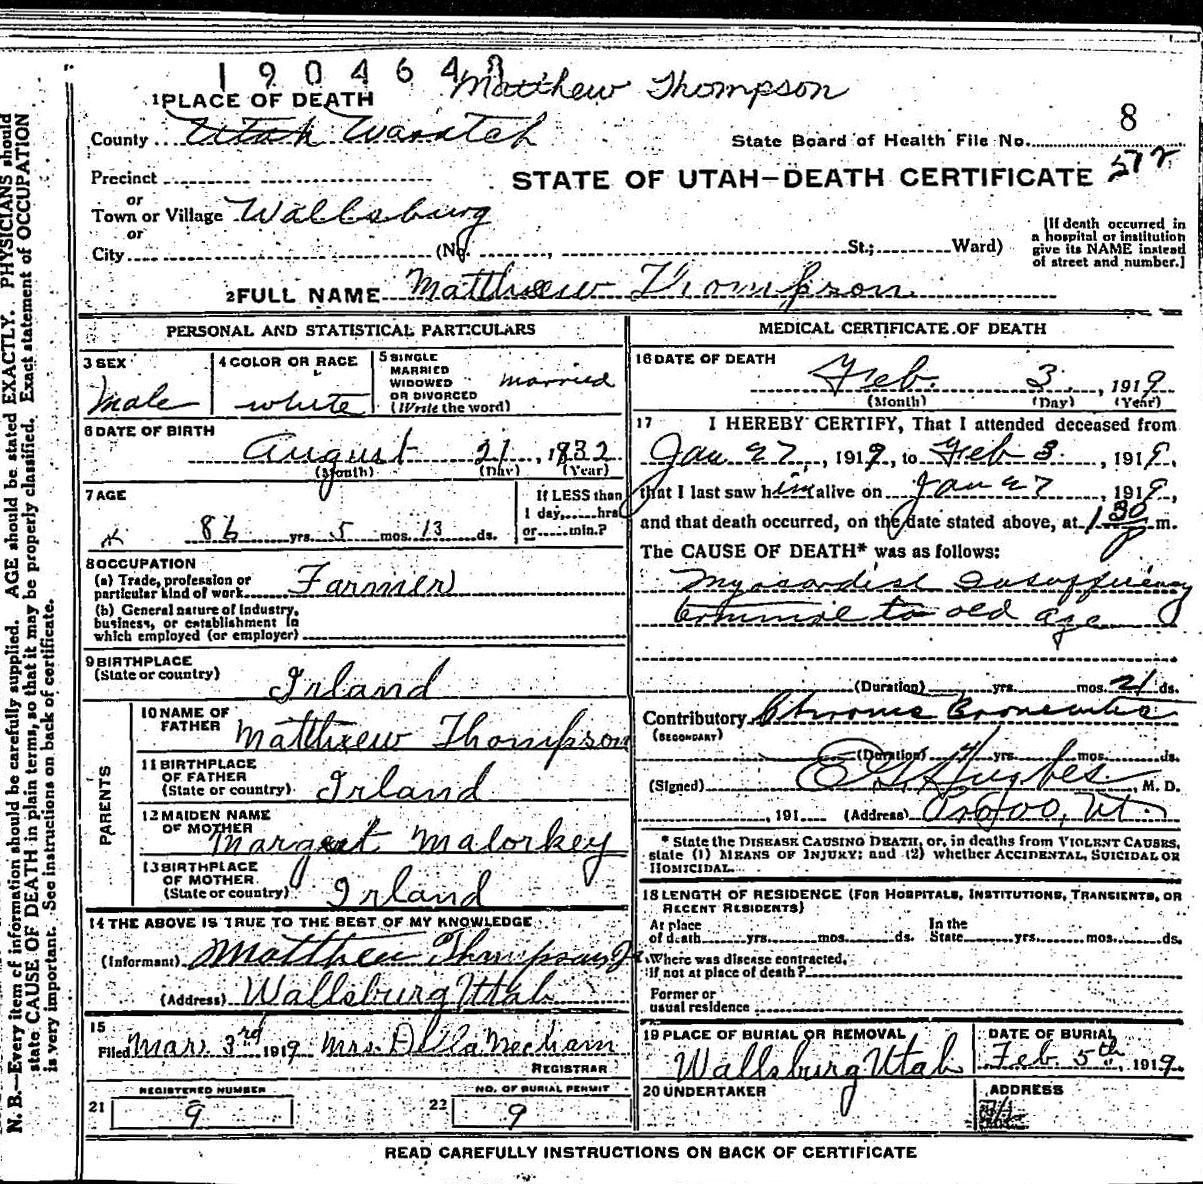 190464
Matthew Thompson
1 PLACE OF DEATH
8
County Utah Wasatch
State Board of Health File No.
572
Precinct
STATE OF UTAH—DEATH CERTIFICATE
or
Town or Village Wallsburg
or
City (No. , St.; Ward)
[If death occurred in
a hospital or institution
give its NAME instead
of street and number.]
2 FULL NAME Matthew Thompson
PERSONAL AND STATISTICAL PARTICULARS
3 SEX
Male
4 COLOR OR RACE
white
5 SINGLE
MARRIED
WIDOWED
OR DIVORCED
(Write the word)
married
6 DATE OF BIRTH
August 21, 1832
(Month) (Day) (Year)
7 AGE
86 yrs. 5 mos. 13 ds.
If LESS than
1 day, hrs
or min.?
8 OCCUPATION
(a) Trade, profession or
particular kind of work Farmer
(b) General nature of Industry,
business, or establishment in
which employed (or employer)
9 BIRTHPLACE
(State or country)
Irland
PARENTS
10 NAME OF
FATHER
Matthew Thompson
11 BIRTHPLACE
OF FATHER
(State or country) Irland
12 MAIDEN NAME
OF MOTHER
Margret Malorkey
13 BIRTHPLACE
OF MOTHER
(State or country) Irland
14 THE ABOVE IS TRUE TO THE BEST OF MY KNOWLEDGE
(Informant) Matthew Thompson Jr.
(Address) Wallsburg Utah
15
Filed Mar. 3rd 1919 Mrs. Della Mecham
REGISTRAR
REGISTERED NUMBER
21 9
NO. OF BURIAL PERMIT
22 9
MEDICAL CERTIFICATE OF DEATH
16 DATE OF DEATH
Feb. 3, 1919
(Month) (Day) (Year)
17 I HEREBY CERTIFY, That I attended deceased from
Jan 27, 1919, to Feb 3, 1919,
that I last saw him alive on Jan 27, 1919,
and that death occurred, on the date stated above, at 1 30 P m.
The CAUSE OF DEATH* was as follows:
Myocardial Insufficiency
terminal to old age
(Duration) yrs. mos. 21 ds.
Contributory Chronic
(SECONDARY)
(Duration) yrs. mos. ds.
(Signed) Hughes M. D.
, 191 (Address) Provo, Ut.
* State the DISEASE CAUSING DEATH, or, in deaths from VIOLENT CAUSES,
state (1) MEANS OF INJURY; and (2) whether ACCIDENTAL, SUICIDAL OR
HOMICIDAL.
18 LENGTH OF RESIDENCE (FOR HOSPITALS, INSTITUTIONS, TRANSIENTS, OR
RECENT RESIDENTS)
At place
of death yrs. mos. ds.
In the
State yrs. mos. ds.
Where was disease contracted,
if not at place of death?
Former or
usual residence
19 PLACE OF BURIAL OR REMOVAL
Wallsburg Utah
DATE OF BURIAL
Feb. 5th, 1919.
20 UNDERTAKER
ADDRESS
READ CAREFULLY INSTRUCTIONS ON BACK OF CERTIFICATE
N. B.—Every item of information should be carefully supplied. AGE should be stated EXACTLY. PHYSICIANS should
state CAUSE OF DEATH in plain terms, so that it may be properly classified. Exact statement of OCCUPATION
is very important. See instructions on back of certificate.